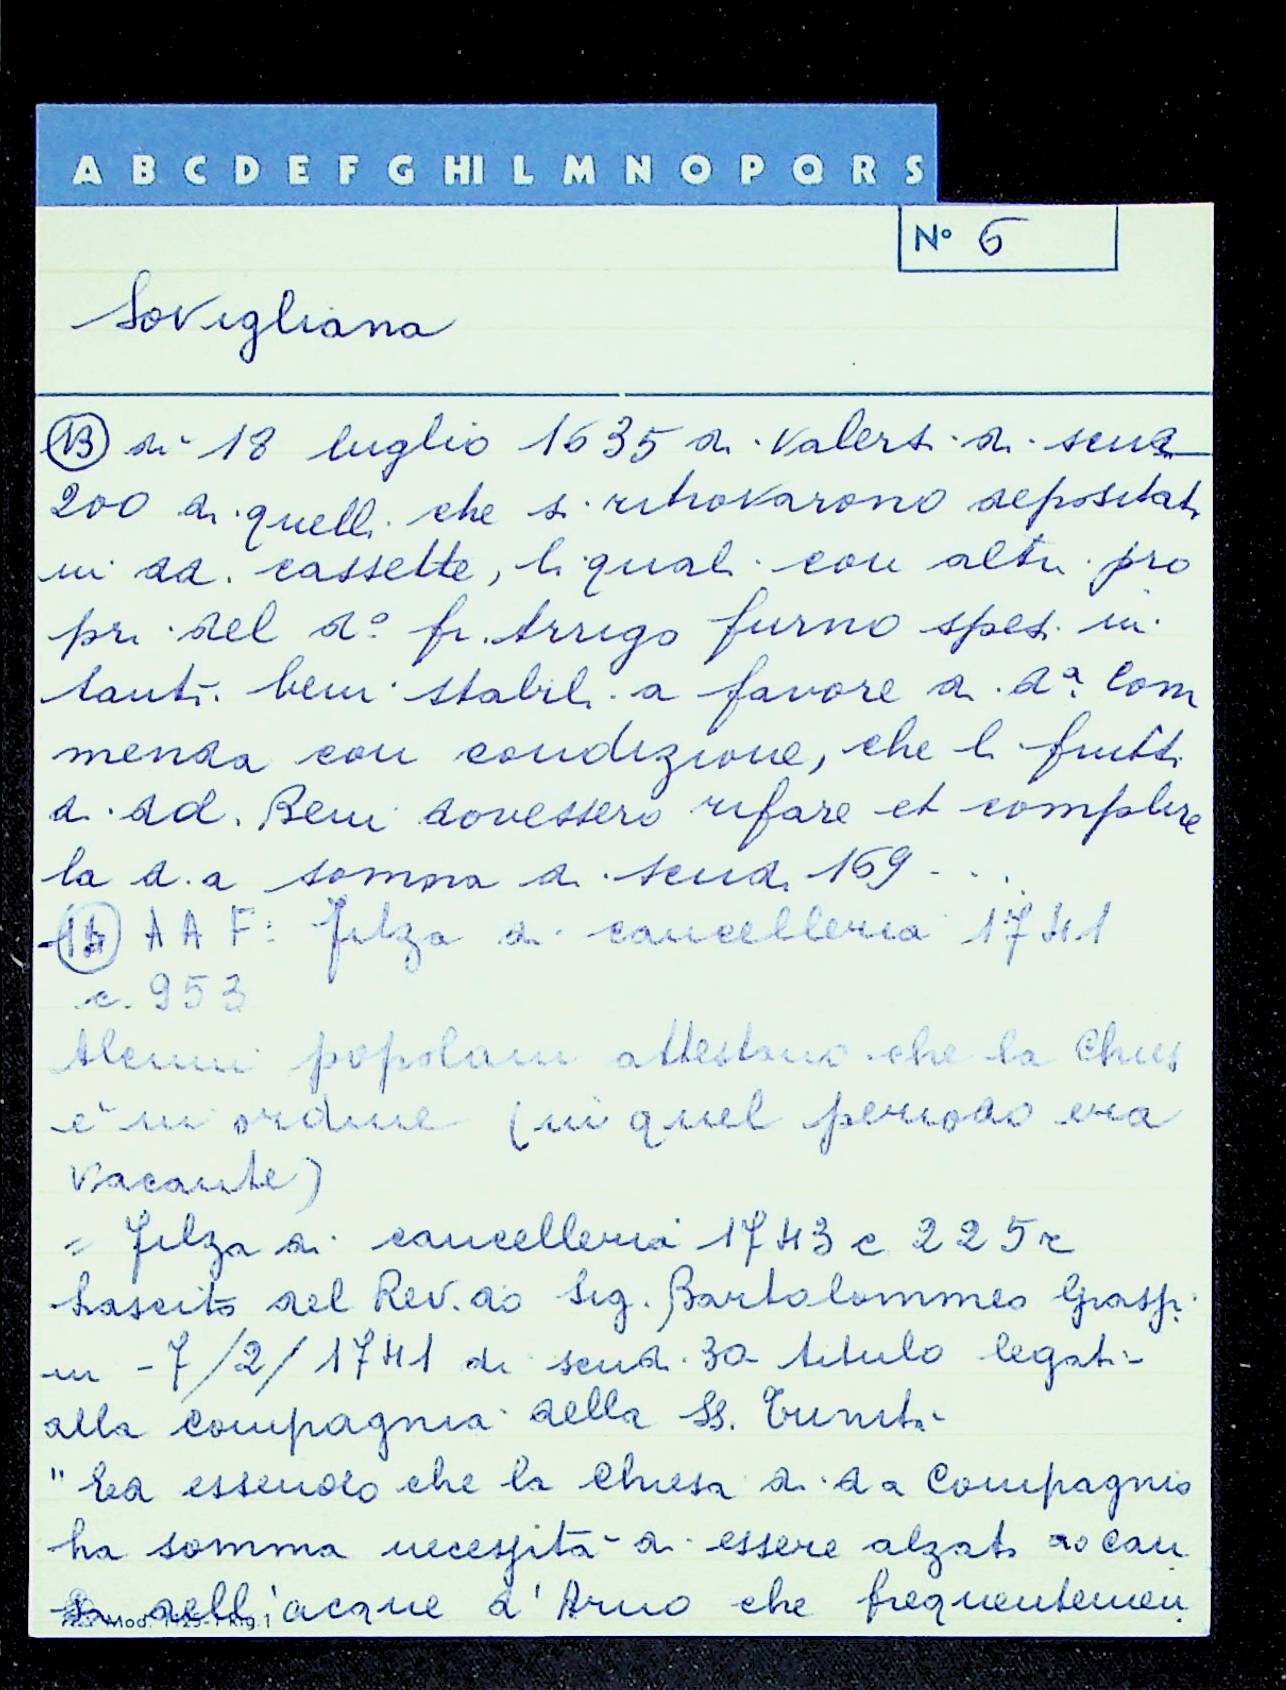 A B C D E F G HI L M N O P Q R S
Nº 6
Sovigliana
(13) dì 18 luglio 1635 di valersi di scudi
200 di quelli che si ritrovarono depositati
in dd. cassette, li quali con altri pro
pri del dº fr. Arrigo furno spesi in
tanti beni stabili a favore di dª Com
menda con condizione, che li frutti
di dd. Beni dovessero rifare et complire
la d.a somma di scudi 169 . . .
(14) A A F: Filza di cancelleria 1741
c. 953
Alcuni popolani attestano che la Chies
è in ordine (in quel periodo era
vacante)
= Filza di cancelleria 1743 c 225r
Lascito del Rev.do Sig. Bartolommeo
in - 7/2/1741 di scudi 30 titulo legati
alla compagnia della SS. Trinità
" Ed essendo che la Chiesa di da Compagnia
ha somma necessità di essere alzata
dell'acque d'Arno che frequentemen
Mod.